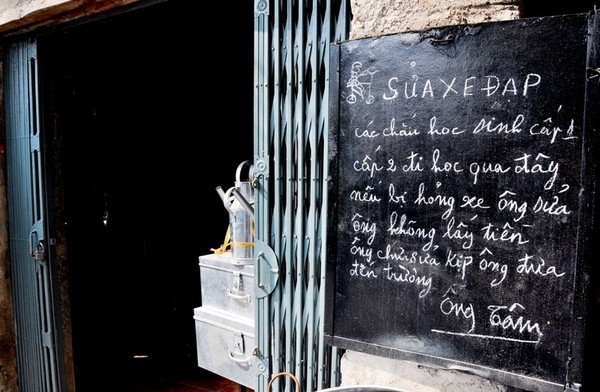 SỬA XE ĐẠP
các cháu học sinh cấp 1
cấp 2 đi học qua đây
nếu bị hỏng xe ông sửa
ông không lấy tiền
ông chưa sửa kịp ông đưa
đến trường
Ông Tâm